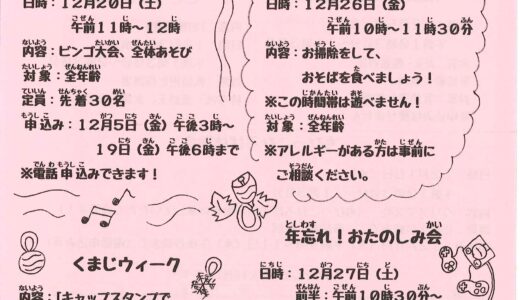 日時：12月20日（土）
午前11時～12時
内容：ビンゴ大会、全体あそび
対象：全年齢
定員：先着30名
申込み：12月5日（金）午後3時～
19日（金）午後6時まで
※電話申込みできます！
日時：12月26日（金）
午前10時～11時30分
内容：お掃除をして、
おそばを食べましょう！
※この時間帯は遊べません！
対象：全年齢
※アレルギーがある方は事前に
ご相談ください。
くまじウィーク
内容：「キャップスタンプで
年忘れ！おたのしみ会
日時：12月27日（土）
前半：午前10時30分～